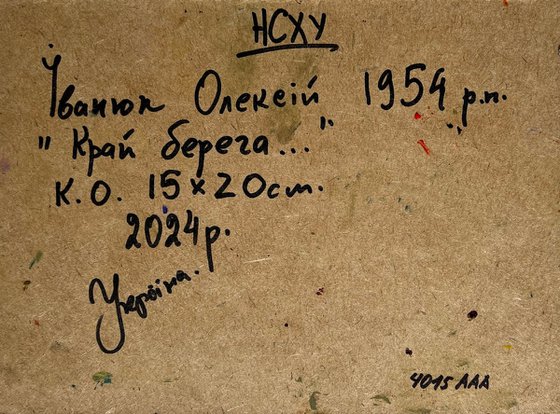 НСХУ
Іванюк Олексій 1954 р.н.
"Край берега..."
К.О. 15x20cm.
2024р.
Україна.
4015 AAA